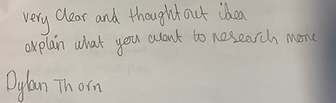 very clear and thought out idea
explain what you want to research more
Dylan Thorn